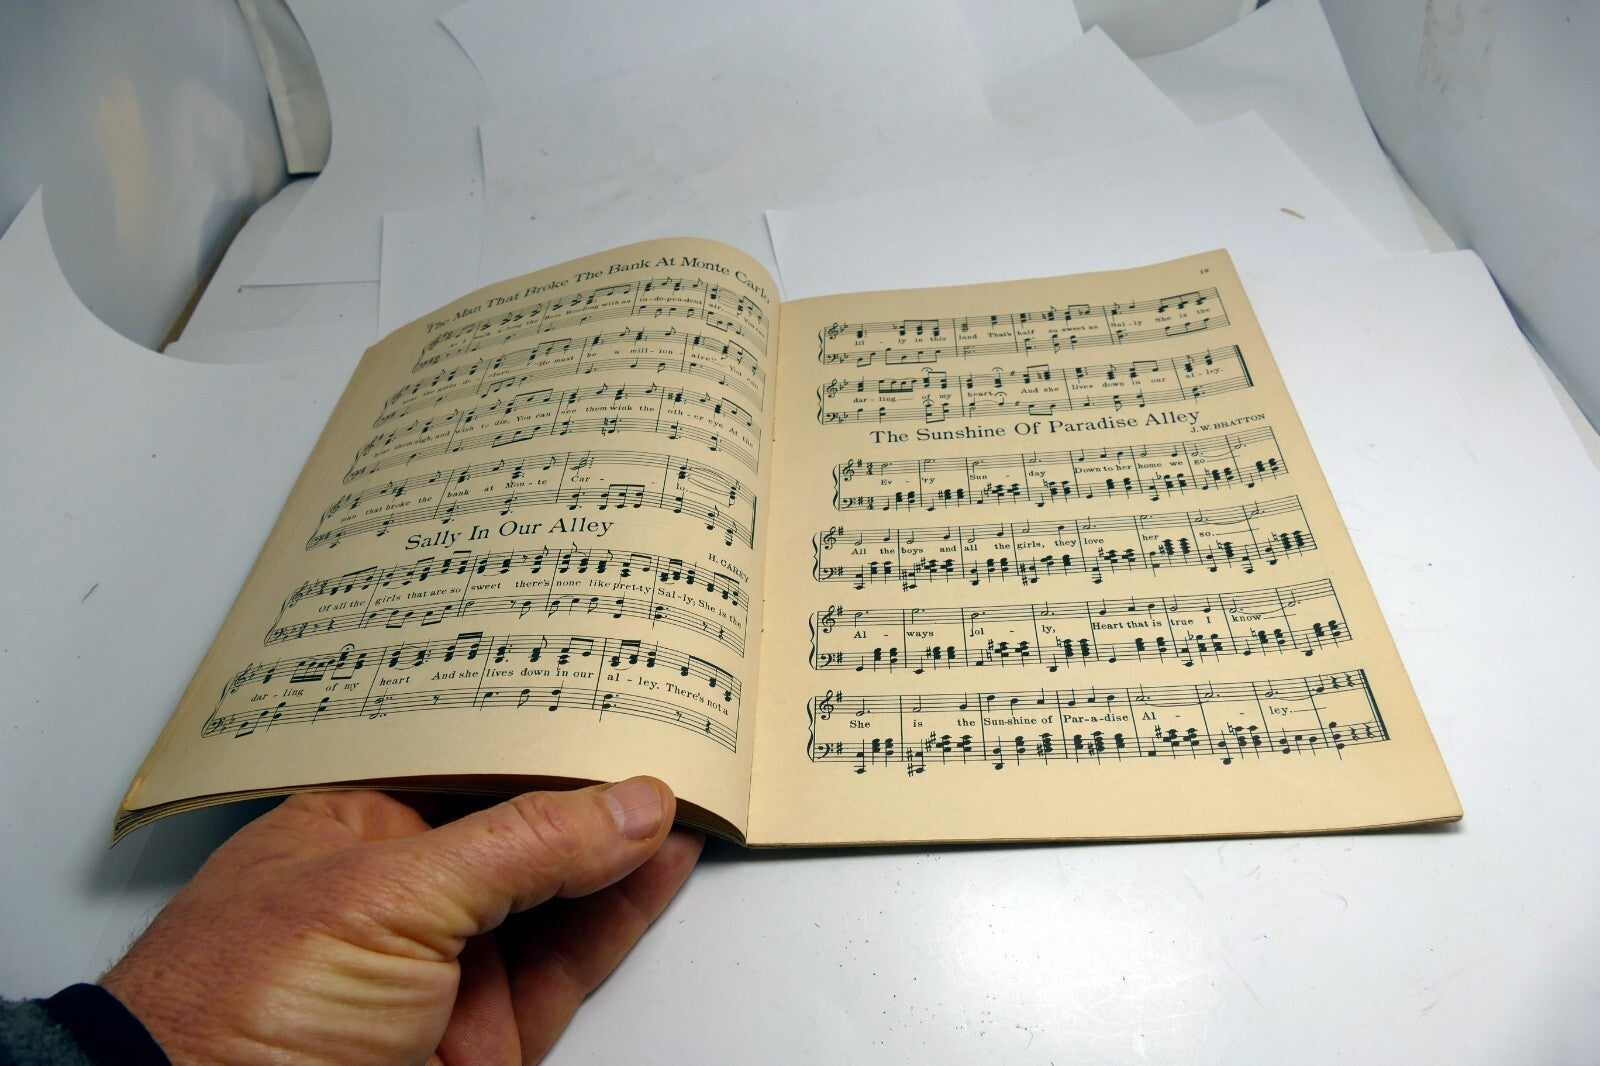 The Man That Broke The Bank At Monte Carlo
As I walk a-long the Bois Boo-long with an in-de-pen-dent air, You can
hear the girls de - clare "He must be a mill - ion - aire:" You can
hear them sigh, and wish to die, You can see them wink the oth - er eye At the
man that broke the bank at Mon - te Car - lo.
Sally In Our Alley
H. CAREY
Of all the girls that are so sweet there's none like pret-ty Sal-ly; She is the
dar - ling of my heart And she lives down in our al - ley. There's not a
19
lil - ly in this land That's half so sweet as Sal - ly She is the
dar - ling of my heart And she lives down in our al - ley.
The Sunshine Of Paradise Alley
J. W. BRATTON
Ev - 'ry Sun - day Down to her home we go
All the boys and all the girls, they love her so.
Al - ways jol - ly, Heart that is true I know
She is the Sun-shine of Par-a-dise Al - ley.